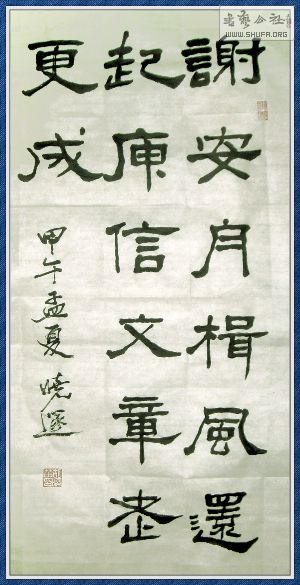 書藝公社
WWW.SHUFA.ORG
謝安舟楫風還
起庾信文章老
更成
甲午孟夏 曉